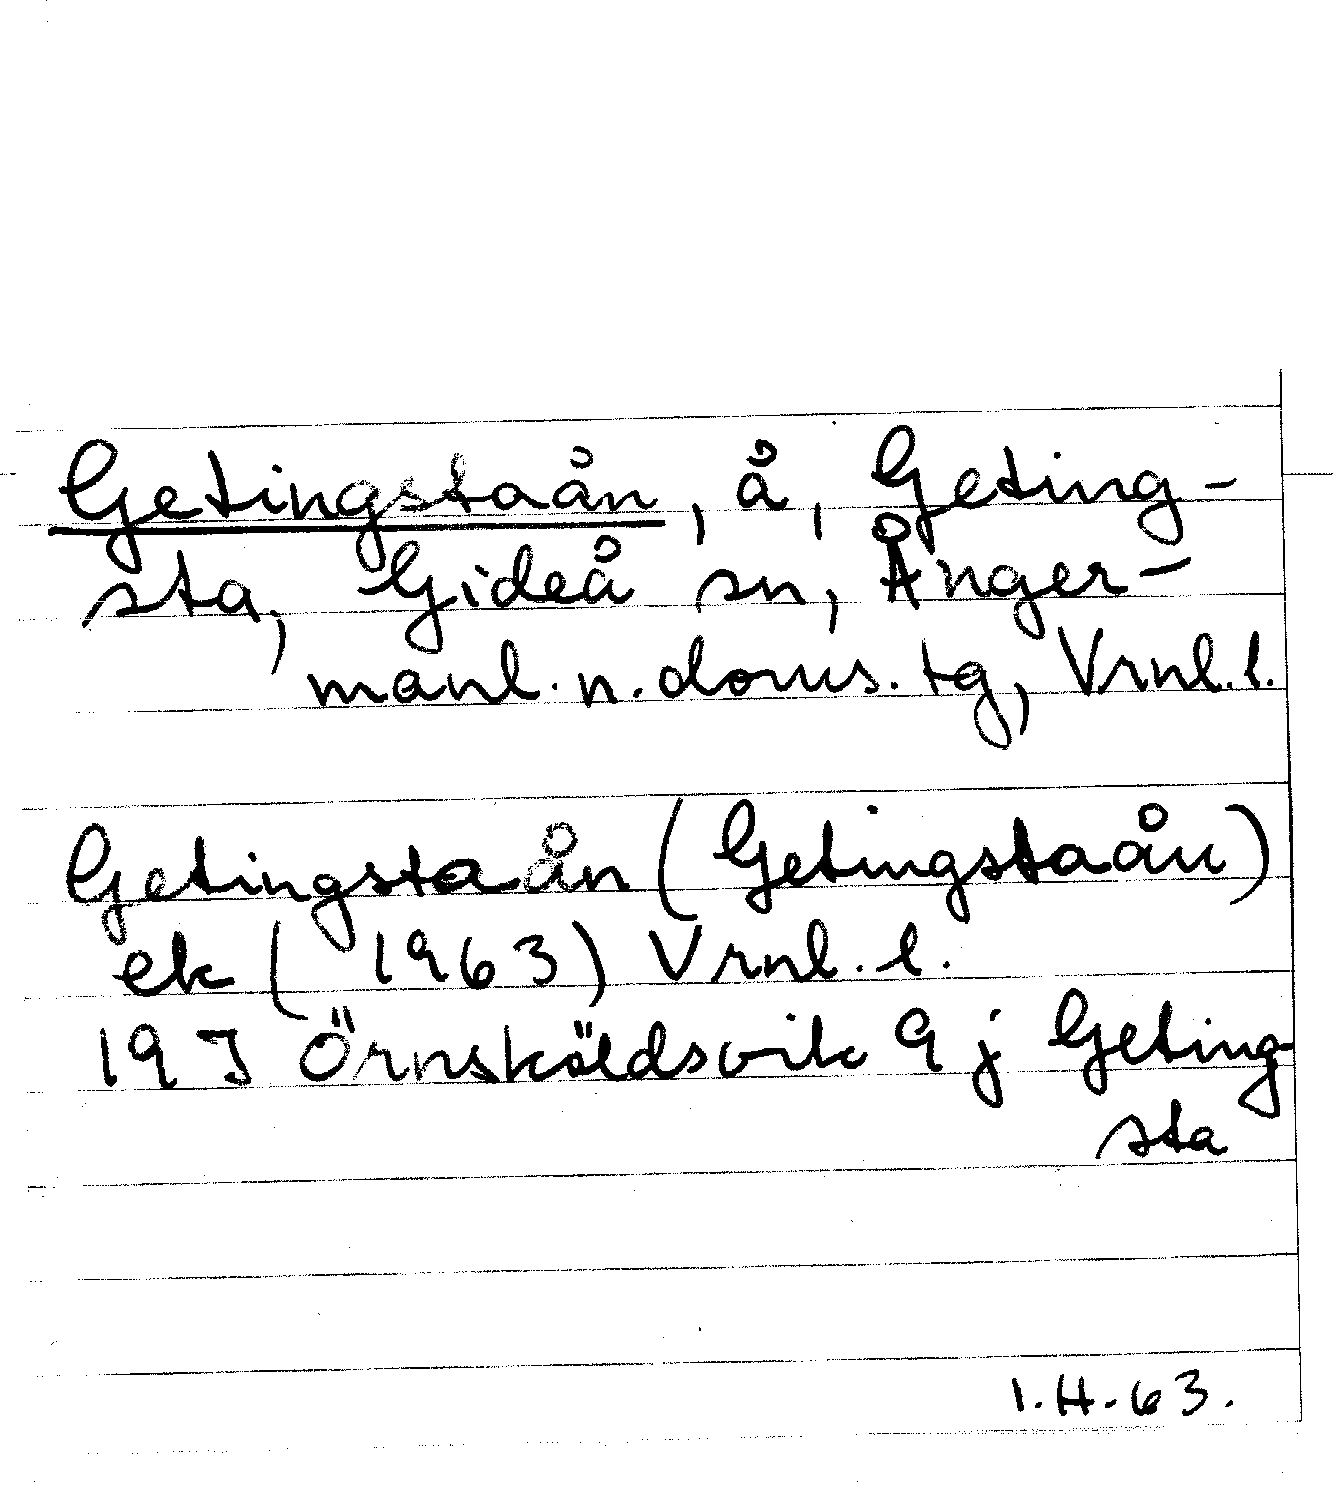 Getingstaån, å, Geting-
sta, Gideå sn, Ånger-
manl. n. doms. tg, Vrnl. l.
Getingstaån (Getingstaån)
ek (1963) Vrnl. l.
19 J Örnsköldsvik 9 j Geting-
sta
I.H.63.